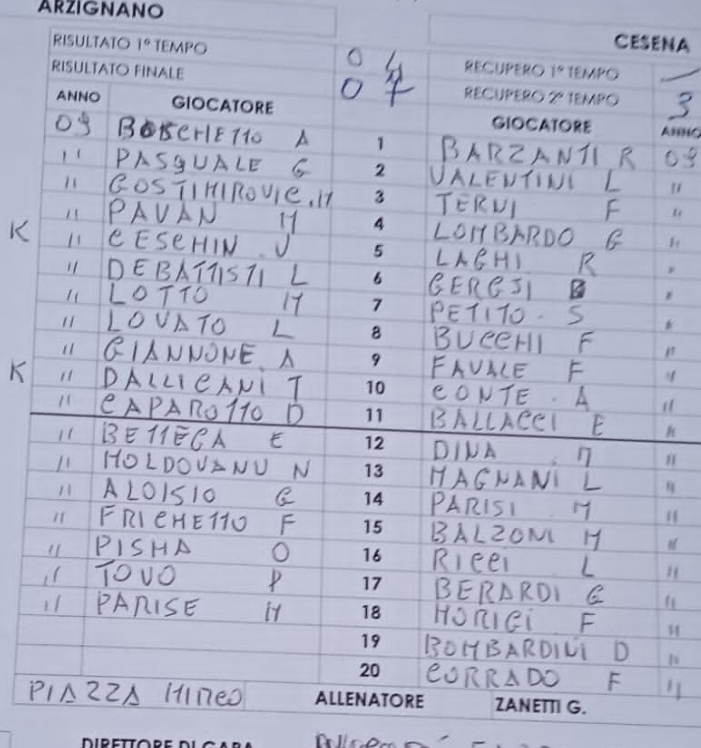 ARZIGNANO
CESENA
RISULTATO 1º TEMPO 0 4 RECUPERO 1º TEMPO –
RISULTATO FINALE 0 7 RECUPERO 2º TEMPO 3
ANNO GIOCATORE GIOCATORE ANNO
09 BOSCHETTO A 1 BARZANTI R 09
" PASQUALE G 2 VALENTINI L "
" GOSTIMIROVIC.M 3 TERNI F "
" PAVAN M 4 LOMBARDO G "
K " CESCHIN J 5 LAGHI R "
" DEBATTISTI L 6 GERGJI B "
" LOTTO M 7 PETITO. S "
" LOVATO L 8 BUCCHI F "
" GIANNONE A 9 FAVALE F "
K " DALLICANI T 10 CONTE. A "
" CAPAROTTO D 11 BALLACCI E "
" BETTEGA E 12 DINA M "
" MOLDOVANU N 13 MAGNANI L "
" ALOISIO G 14 PARISI M "
" FRICHETTO F 15 BALZONI M "
" PISHA O 16 RICCI L "
" TOVO P 17 BERARDI G "
" PARISE M 18 MORIGI F "
19 BOMBARDINI D "
20 CORRADO F "
PIAZZA MIRCO ALLENATORE ZANETTI G.
DIRETTORE DI GARA